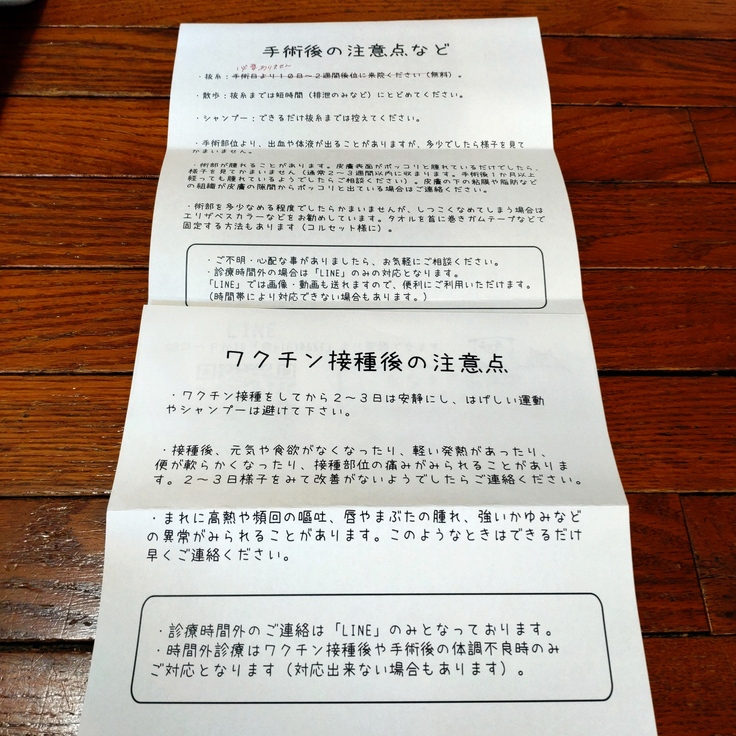 手術後の注意点など
必要ありません
・抜糸：手術日より１０日～２週間後位に来院ください（無料）。
・散歩：抜糸までは短時間（排泄のみなど）にとどめてください。
・シャンプー：できるだけ抜糸までは控えてください。
・手術部位より、出血や体液が出ることがありますが、多少でしたら様子を見て
かまいません。
・術部が腫れることがあります。皮膚表面がポッコリと腫れているだけでしたら、
様子を見てかまいません（通常２～３週間以内に収まります。手術後１か月以上
経っても腫れているようでしたらご相談ください）。皮膚の下の粘膜や脂肪など
の組織が皮膚の隙間からポッコリと出ている場合はご連絡ください。
・術部を多少なめる程度でしたらかまいませんが、しつこくなめてしまう場合は
エリザベスカラーなどをお勧めしています。タオルを首に巻きガムテープなどで
固定する方法もあります（コルセット様に）。
・ご不明・心配な事がありましたら、お気軽にご相談ください。
・診療時間外の場合は「LINE」のみの対応となります。
「LINE」では画像・動画も送れますので、便利にご利用いただけます。
（時間帯により対応できない場合もあります。）
ワクチン接種後の注意点
・ワクチン接種をしてから２～３日は安静にし、はげしい運動
やシャンプーは避けて下さい。
・接種後、元気や食欲がなくなったり、軽い発熱があったり、
便が軟らかくなったり、接種部位の痛みがみられることがありま
す。２～３日様子をみて改善がないようでしたらご連絡ください。
・まれに高熱や頻回の嘔吐、唇やまぶたの腫れ、強いかゆみなど
の異常がみられることがあります。このようなときはできるだけ
早くご連絡ください。
・診療時間外のご連絡は「LINE」のみとなっております。
・時間外診療はワクチン接種後や手術後の体調不良時のみ
ご対応となります（対応出来ない場合もあります）。